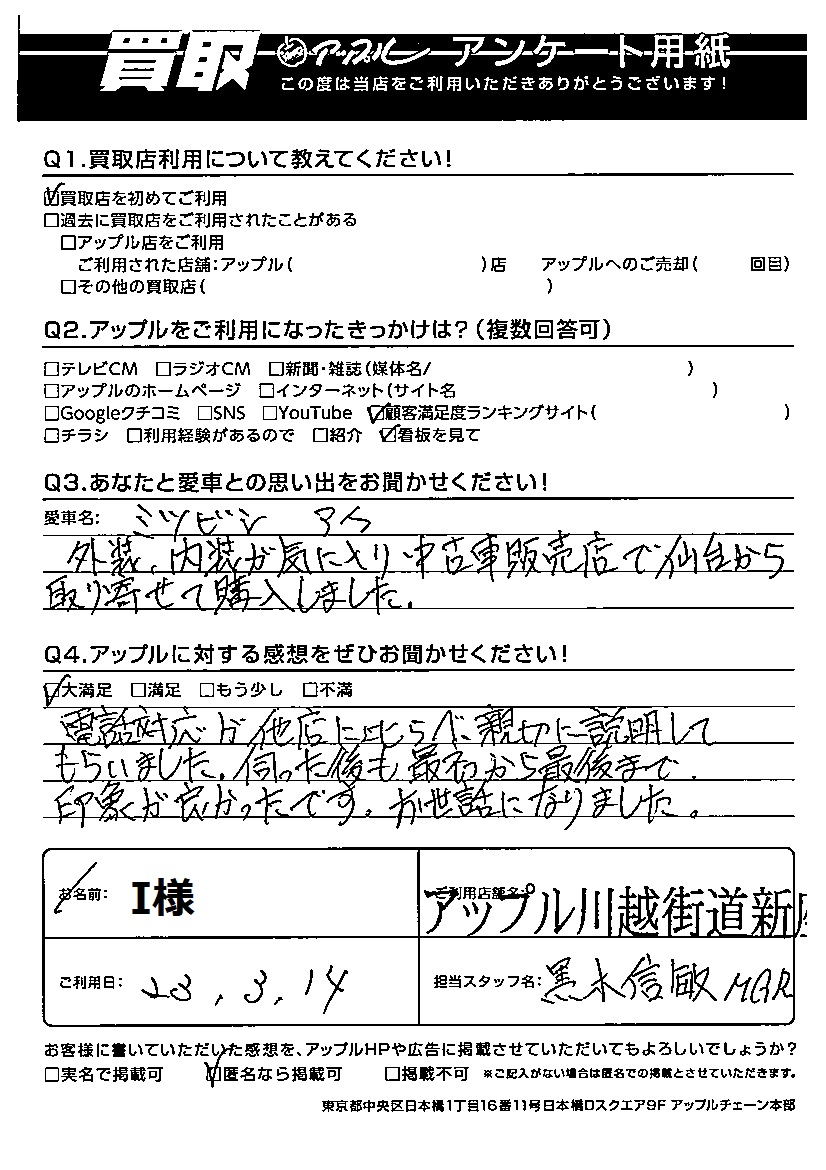 買取 アップル アンケート用紙
この度は当店をご利用いただきありがとうございます!
Q1.買取店利用について教えてください!
☑買取店を初めてご利用
□過去に買取店をご利用されたことがある
□アップル店をご利用
ご利用された店舗:アップル( )店 アップルへのご売却( 回目)
□その他の買取店( )
Q2.アップルをご利用になったきっかけは?(複数回答可)
□テレビCM □ラジオCM □新聞・雑誌(媒体名/ )
□アップルのホームページ □インターネット(サイト名 )
□Googleクチコミ □SNS □YouTube ☑顧客満足度ランキングサイト( )
□チラシ □利用経験があるので □紹介 ☑看板を見て
Q3.あなたと愛車との思い出をお聞かせください!
愛車名: ミツビシ アイ
外装、内装が気に入り中古車販売店で仙台から
取り寄せて購入しました。
Q4.アップルに対する感想をぜひお聞かせください!
☑大満足 □満足 □もう少し □不満
電話対応が他店に比らべ、親切に説明して
もらいました。伺った後も最初から最後まで、
印象が良かったです。お世話になりました。
お名前: I様
ご利用店舗名: アップル川越街道新座
ご利用日: 23.3.14
担当スタッフ名: 黒木信敏 MGR
お客様に書いていただいた感想を、アップルHPや広告に掲載させていただいてもよろしいでしょうか?
□実名で掲載可 ☑匿名なら掲載可 □掲載不可 ※ご記入がない場合は匿名での掲載とさせていただきます。
東京都中央区日本橋1丁目16番11号日本橋Dスクエア9F アップルチェーン本部